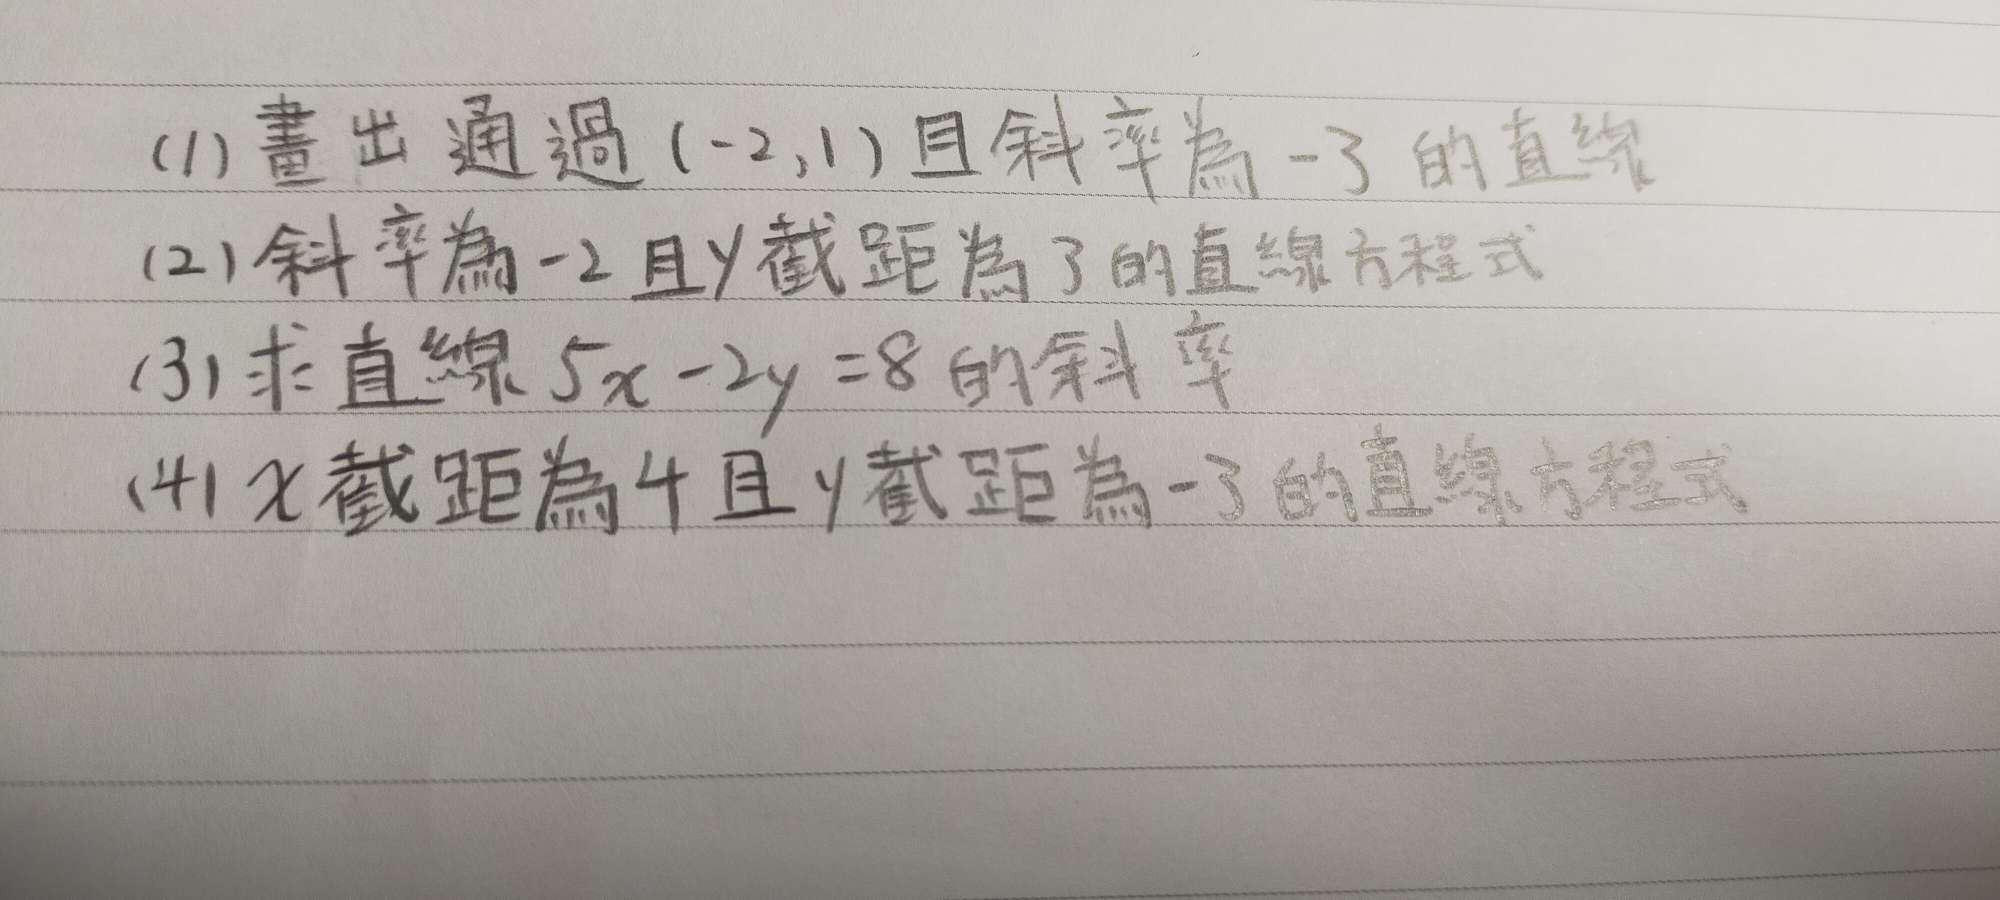 (1) 畫出通過(-2,1)且斜率為-3的直線
(2) 斜率為-2且y截距為3的直線方程式
(3) 求直線5x-2y=8的斜率
(4) x截距為4且y截距為-3的直線方程式